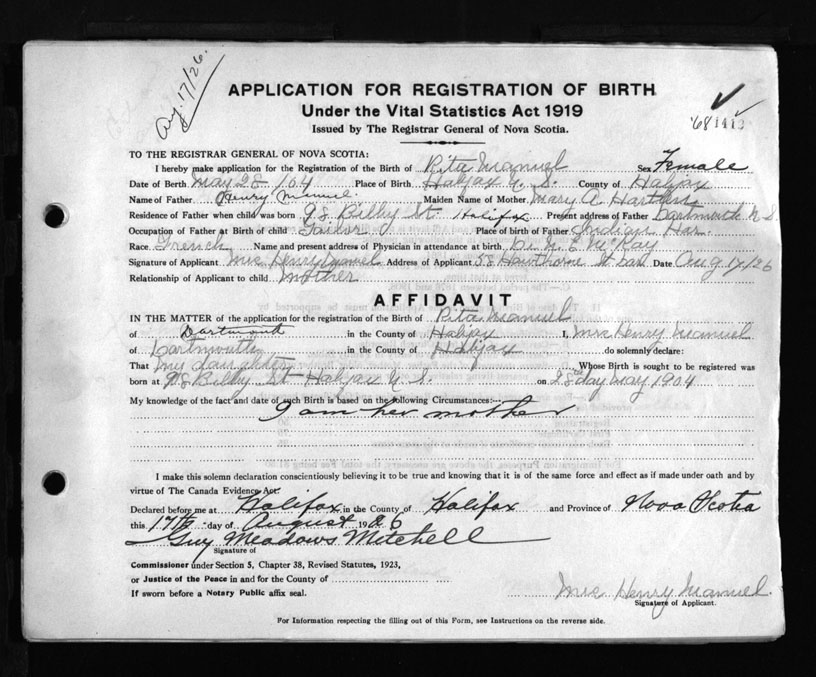 Aug. 17/26.
APPLICATION FOR REGISTRATION OF BIRTH
Under the Vital Statistics Act 1919
Issued by The Registrar General of Nova Scotia.
TO THE REGISTRAR GENERAL OF NOVA SCOTIA:
I hereby make application for the Registration of the Birth of Rita Manuel Sex Female
Date of Birth May 28 /04 Place of Birth Halifax N. S. County of Halifax
Name of Father Henry Manuel. Maiden Name of Mother Mary A
Residence of Father when child was born 98 Bilby St. Halifax Present address of Father Dartmouth N S
Occupation of Father at Birth of child Tailor Place of birth of Father Indian Har.
Race French Name and present address of Physician in attendance at birth Dr. N E McKay
Signature of Applicant Mrs Henry Manuel Address of Applicant 58 Hawthorne St Date Aug 17/26
Relationship of Applicant to child Mother
AFFIDAVIT
IN THE MATTER of the application for the registration of the Birth of Rita Manuel
of Dartmouth in the County of Halifax I, Mrs Henry Manuel
of Dartmouth in the County of Halifax do solemnly declare:
That my daughter Whose Birth is sought to be registered was
born at 98 Bilby St Halifax N. S. on 28 day May 1904
My knowledge of the fact and date of such Birth is based on the following Circumstances:—
I am her mother
I make this solemn declaration conscientiously believing it to be true and knowing that it is of the same force and effect as if made under oath and by
virtue of The Canada Evidence Act.
Declared before me at Halifax in the County of Halifax and Province of Nova Scotia
this 17th day of August 1926
Guy Meadows Mitchell
Signature of
Commissioner under Section 5, Chapter 38, Revised Statutes, 1923,
or Justice of the Peace in and for the County of
If sworn before a Notary Public affix seal.
Mrs Henry Manuel.
Signature of Applicant.
For Information respecting the filling out of this Form, see Instructions on the reverse side.